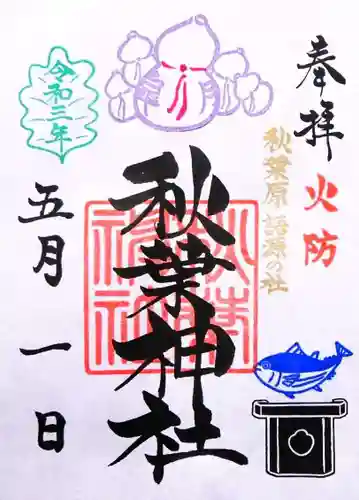 奉拝
火防
秋葉原 語源の社
秋葉神社
令和三年
五月一日